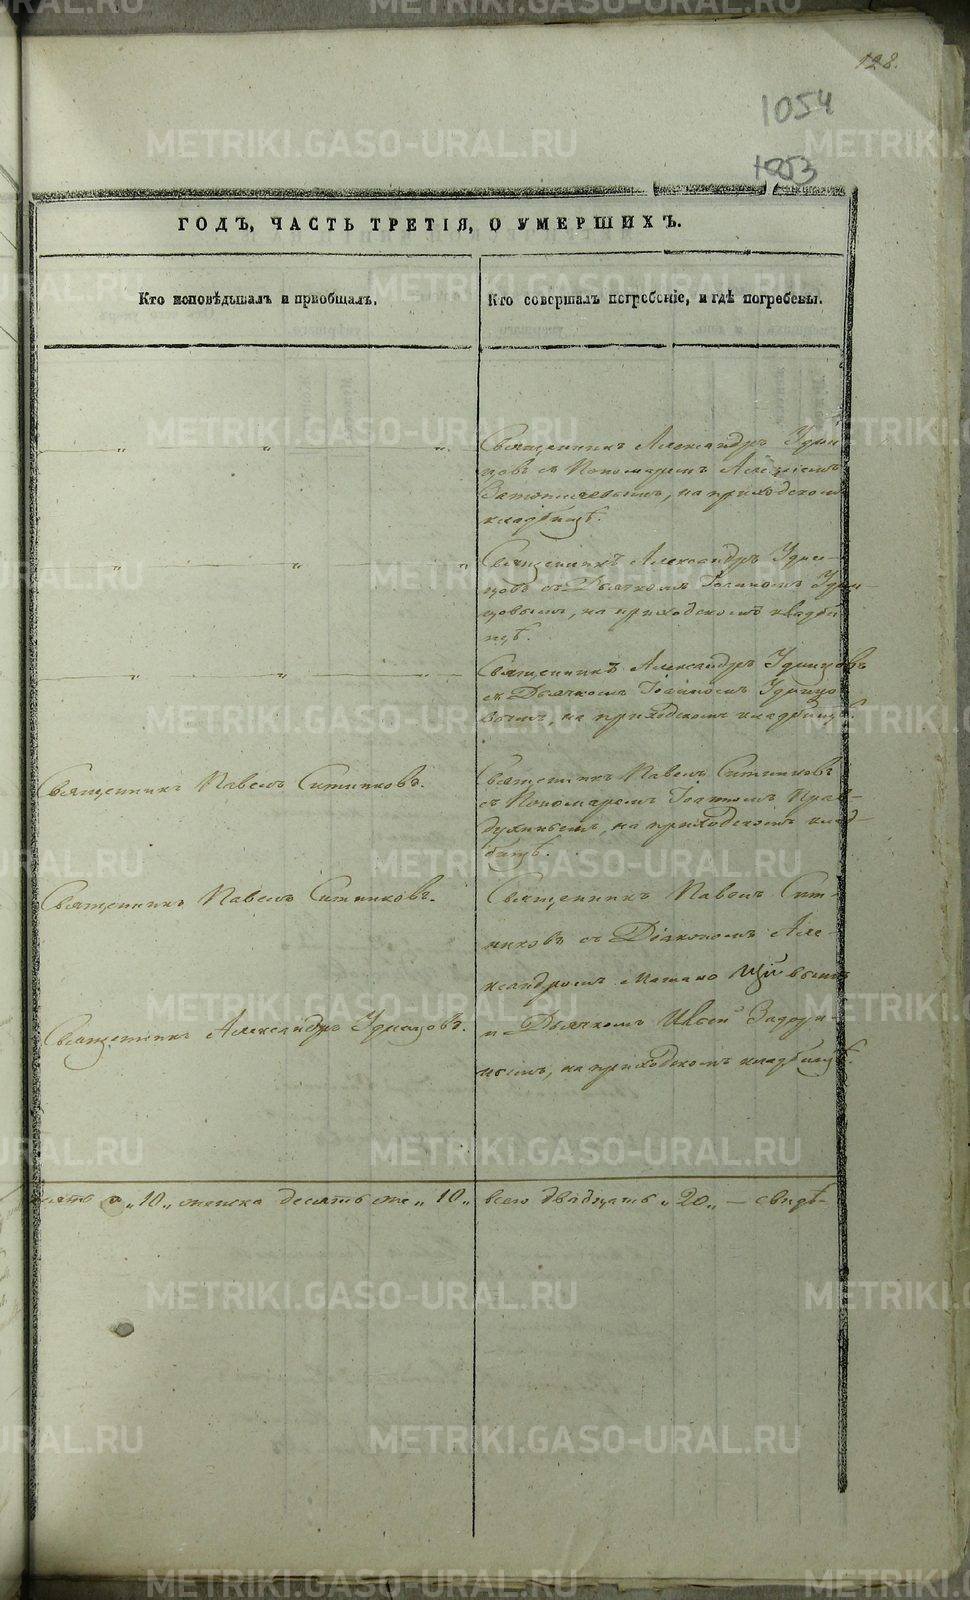 128.
1054
1053
ГОДЪ, ЧАСТЬ ТРЕТІЯ, О УМЕРШИХЪ.
Кто исповѣдывалъ и пріобщалъ.
Кто совершалъ погребеніе, и гдѣ погребены.
Священникъ Александръ Удин
цовъ съ Пономаремъ Алексіемъ
на приходскомъ
кладбищѣ.
Священникъ Александръ Удин-
цовъ съ Дьячкомъ Іоанномъ Удин-
цовымъ, на приходскомъ кладби
щѣ.
Священникъ Александръ Удинцовъ
съ Дьячкомъ Іоанномъ Удинцо
вымъ, на приходскомъ кладбищѣ.
Священникъ Павелъ Ситниковъ.
Священникъ Павелъ Ситниковъ
съ Пономаремъ Іоанномъ Прав-
духинымъ, на приходскомъ клад-
бищѣ.
Священникъ Павелъ Ситниковъ.
Священникъ Павелъ Сит-
никовъ съ Діакономъ Але-
ксандромъ
Священникъ Александръ Удинцовъ.
и Дьячкомъ
нымъ, на приходскомъ кладбищѣ.
„10„ женска десять же „10„ всего двадцать „20„ — свидѣ-
METRIKI.GASO-URAL.RU